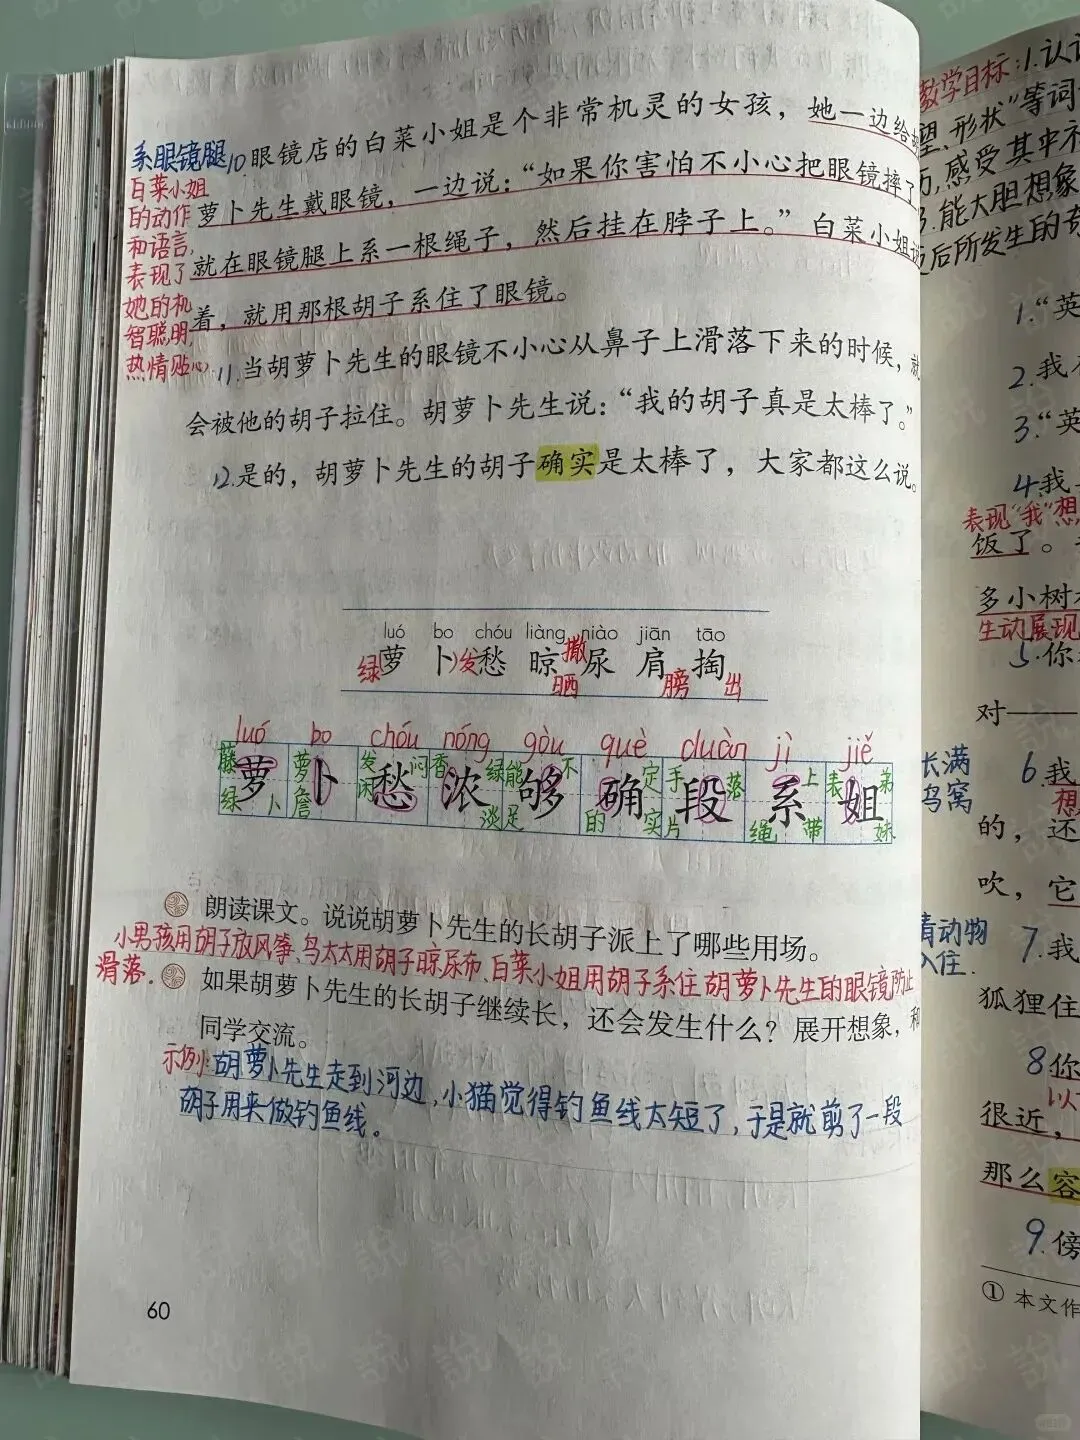 系眼镜腿
10.眼镜店的白菜小姐是个非常机灵的女孩，她一边给
萝卜先生戴眼镜，一边说：“如果你害怕不小心把眼镜摔了
就在眼镜腿上系一根绳子，然后挂在脖子上。”白菜小姐说
着，就用那根胡子系住了眼镜。
白菜小姐
的动作
和语言，
表现了
她的机
智聪明，
热情贴心
11.当胡萝卜先生的眼镜不小心从鼻子上滑落下来的时候，就
会被他的胡子拉住。胡萝卜先生说：“我的胡子真是太棒了。”
12.是的，胡萝卜先生的胡子确实是太棒了，大家都这么说。
luó bo chóu liàng niào jiān tāo
绿萝 卜 发愁 晾晒 撒尿 肩膀 掏出
luó bo chóu nóng gòu què duàn jì jiě
萝 卜 愁 浓 够 确 段 系 姐
藤 萝 发 闷 香 绿 能 不 定 手 落 上 表 弟
绿 卜 詹 闲 淡 足 的 实 片 绳 带 妹
朗读课文。说说胡萝卜先生的长胡子派上了哪些用场。
小男孩用胡子放风筝、鸟太太用胡子晾尿布、白菜小姐用胡子系住胡萝卜先生的眼镜防止
滑落.
如果胡萝卜先生的长胡子继续长，还会发生什么？展开想象，和
同学交流。
示例：胡萝卜先生走到河边，小猫觉得钓鱼线太短了，于是就剪了一段
胡子用来做钓鱼线。
60
教学目标：1.认
望、形状”等词
感受其中
3.能大胆想象
后所发生的
1.“英
2.我
3.“英
4.我
表现“我”想
饭了。
多小树
生动展现
5.你
对——
长满
鸟窝
6.我
想
的，还
吹，它
动物
入住.
7.我
狐狸住
8.你
以
很近，
那么容
9.傍
①本文作